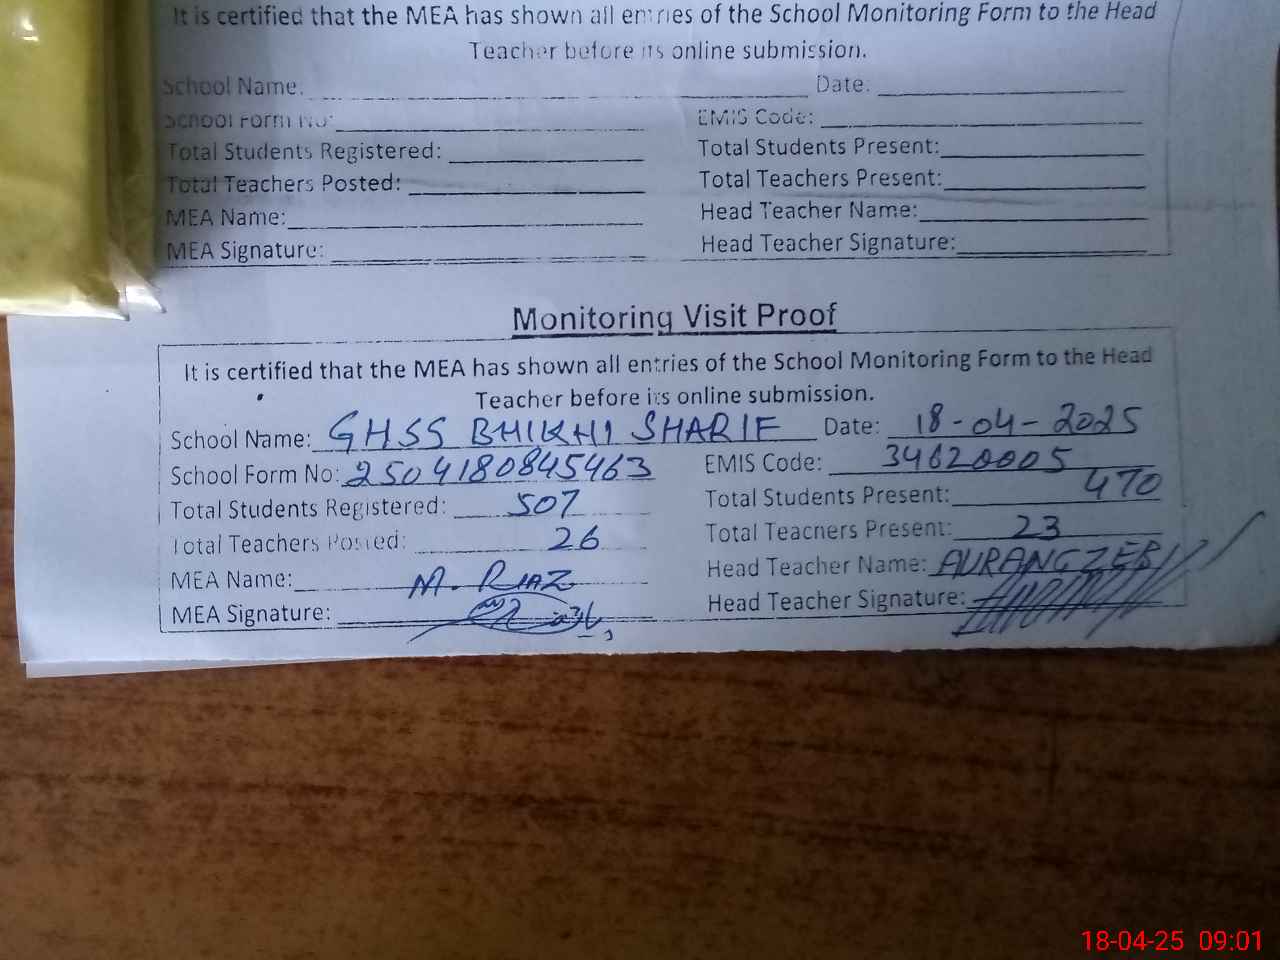 It is certified that the MEA has shown all entries of the School Monitoring Form to the Head
Teacher before its online submission.
School Name: Date:
School Form No: EMIS Code:
Total Students Registered: Total Students Present:
Total Teachers Posted: Total Teachers Present:
MEA Name: Head Teacher Name:
MEA Signature: Head Teacher Signature:
Monitoring Visit Proof
It is certified that the MEA has shown all entries of the School Monitoring Form to the Head
Teacher before its online submission.
School Name: GHSS BHIKHI SHARIF Date: 18-04-2025
School Form No: 2504180845463 EMIS Code: 34620005
Total Students Registered: 507 Total Students Present: 470
Total Teachers Posted: 26 Total Teachers Present: 23
MEA Name: M. RIAZ Head Teacher Name: AURANGZEB
MEA Signature: Head Teacher Signature:
18-04-25 09:01